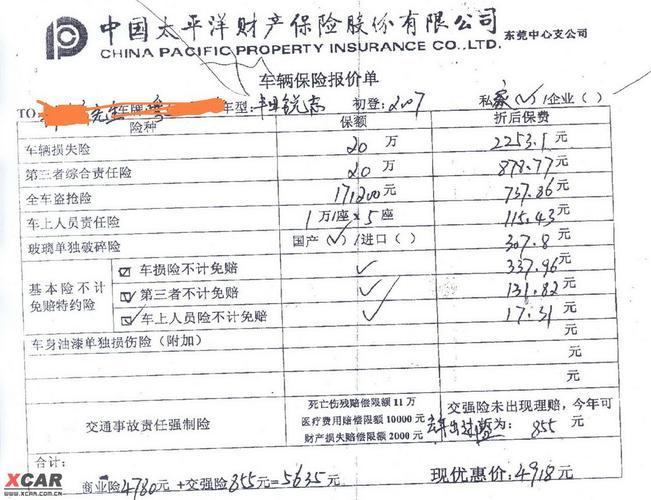 中国太平洋财产保险股份有限公司 东莞中心支公司
CHINA PACIFIC PROPERTY INSURANCE CO.,LTD.
车辆保险报价单
TO 先生 车牌: 车型: 丰田锐志 初登: 2007 私家(√)/企业( )
险种 保额 折后保费
车辆损失险 20 万 2253.1 元
第三者综合责任险 20 万 878.77 元
全车盗抢险 171200 元 737.86 元
车上人员责任险 1 万/1座 × 5 座 115.43 元
玻璃单独破碎险 国产(√)/进口( ) 307.8 元
基本险不计免赔特约险
☑ 车损险不计免赔 √ 337.96 元
☑ 第三者不计免赔 √ 131.82 元
☑ 车上人员险不计免赔 √ 17.31 元
车身油漆单独损伤险(附加) 元
元
交通事故责任强制险
死亡伤残赔偿限额 11 万
医疗费用赔偿限额 10000 元
财产损失赔偿限额 2000 元
交强险未出现理赔,今年可
为: 855 元
合计:
商业险 4780 元 +交强险 855 元= 5635 元 现优惠价: 4918 元
XCAR
WWW.XCAR.COM.CN